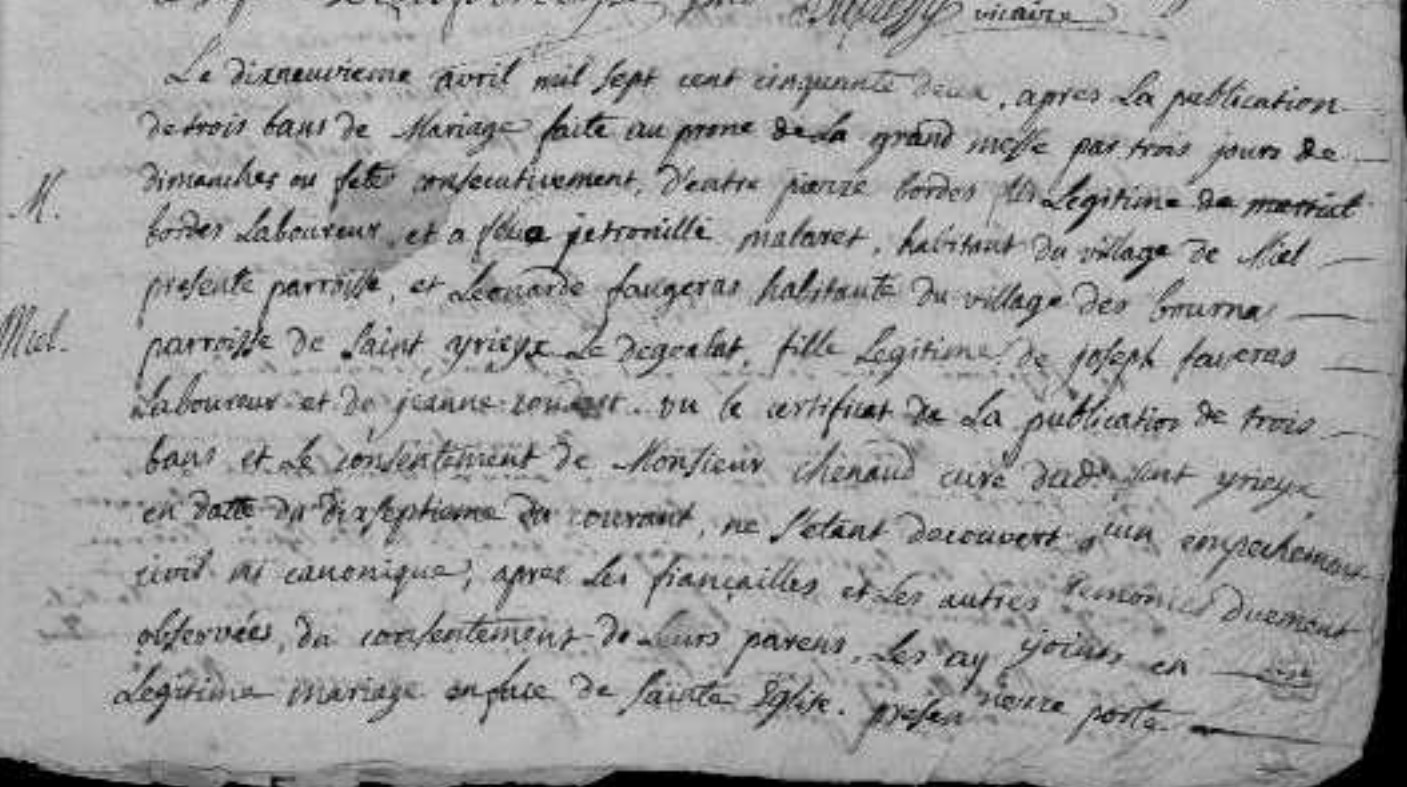 vicaire
Le dixneuvieme avril mil sept cent cinquante deux, apres La publication
de trois bans de Mariage faite au prone de La grand messe par trois jours de
dimanches ou fetes consecutivement, d'entre pierre bordes fils Legitime de martial
M.
bordes Laboureur, et a feue petronille malaret, habitant du village de Miel
presente parroisse, et Leonarde faugeras habitante du village des bournas
Miel.
parroisse de Saint yrieyx Le degealat, fille Legitime de joseph faugeras
Laboureur et de jeanne vu le certificat de La publication de trois
bans et Le consentement de Monsieur chenaud curé dud. saint yrieyx
en datte du dixseptieme du courant, ne s'etant decouvert aucun empechement
civil ni canonique; apres Les fiançailles et Les autres ceremonies duement
observées, du consentement de Leurs parens, Les ay joints en
Legitime mariage en face de Sainte Eglise. presen pierre porte